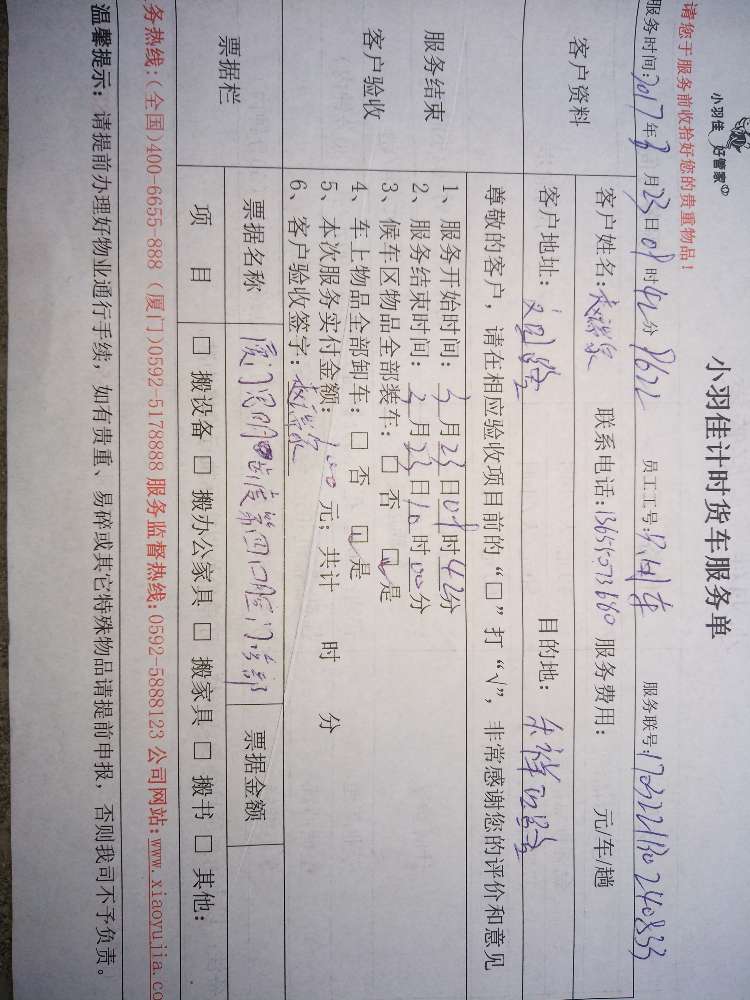 小羽佳 好管家
小羽佳计时货车服务单
请您于服务前收拾好您的贵重物品！
服务时间:2017年3月23日09时42分 8622 员工工号: 服务联号:170322180240833
客户资料
客户姓名: 联系电话:13655073680 服务费用: 元/车/趟
客户地址: 目的地:
尊敬的客户，请在相应验收项目前的“□”打“√”，非常感谢您的评价和意见
服务结束
客户验收
1、服务开始时间: 3月23日09时42分
2、服务结束时间: 3月23日10时00分
3、候车区物品全部装车: □ 否 □ 是
4、车上物品全部卸车: □ 否 □ 是
5、本次服务实付金额: 100元; 共计 时 分
6、客户验收签字:
票据栏
票据名称 厦门 口腔门诊部 票据金额
项 目 □ 搬设备 □ 搬办公家具 □ 搬家具 □ 搬书 □ 其他:
务热线:(全国)400-6655-888 (厦门)0592-5178888 服务监督热线:0592-5888123 公司网站:www.xiaoyujia.co
温馨提示: 请提前办理好物业通行手续，如有贵重、易碎或其它特殊物品请提前申报，否则我司不予负责。